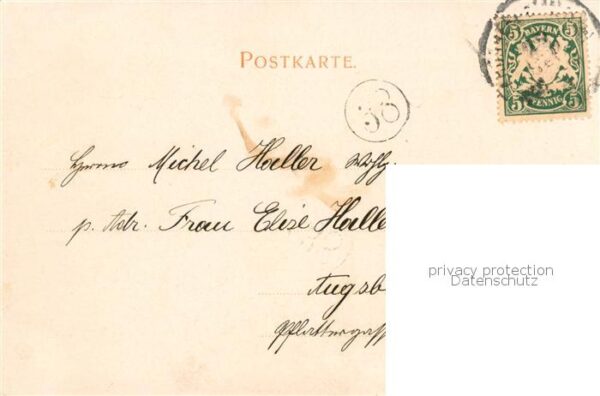 BAYERN
5 5
5 PFENNIG 5
POSTKARTE.
38
Herrn Michel Haller Wohlg.
p. Adr. Frau Elise Halle
Augsb
privacy protection
Datenschutz